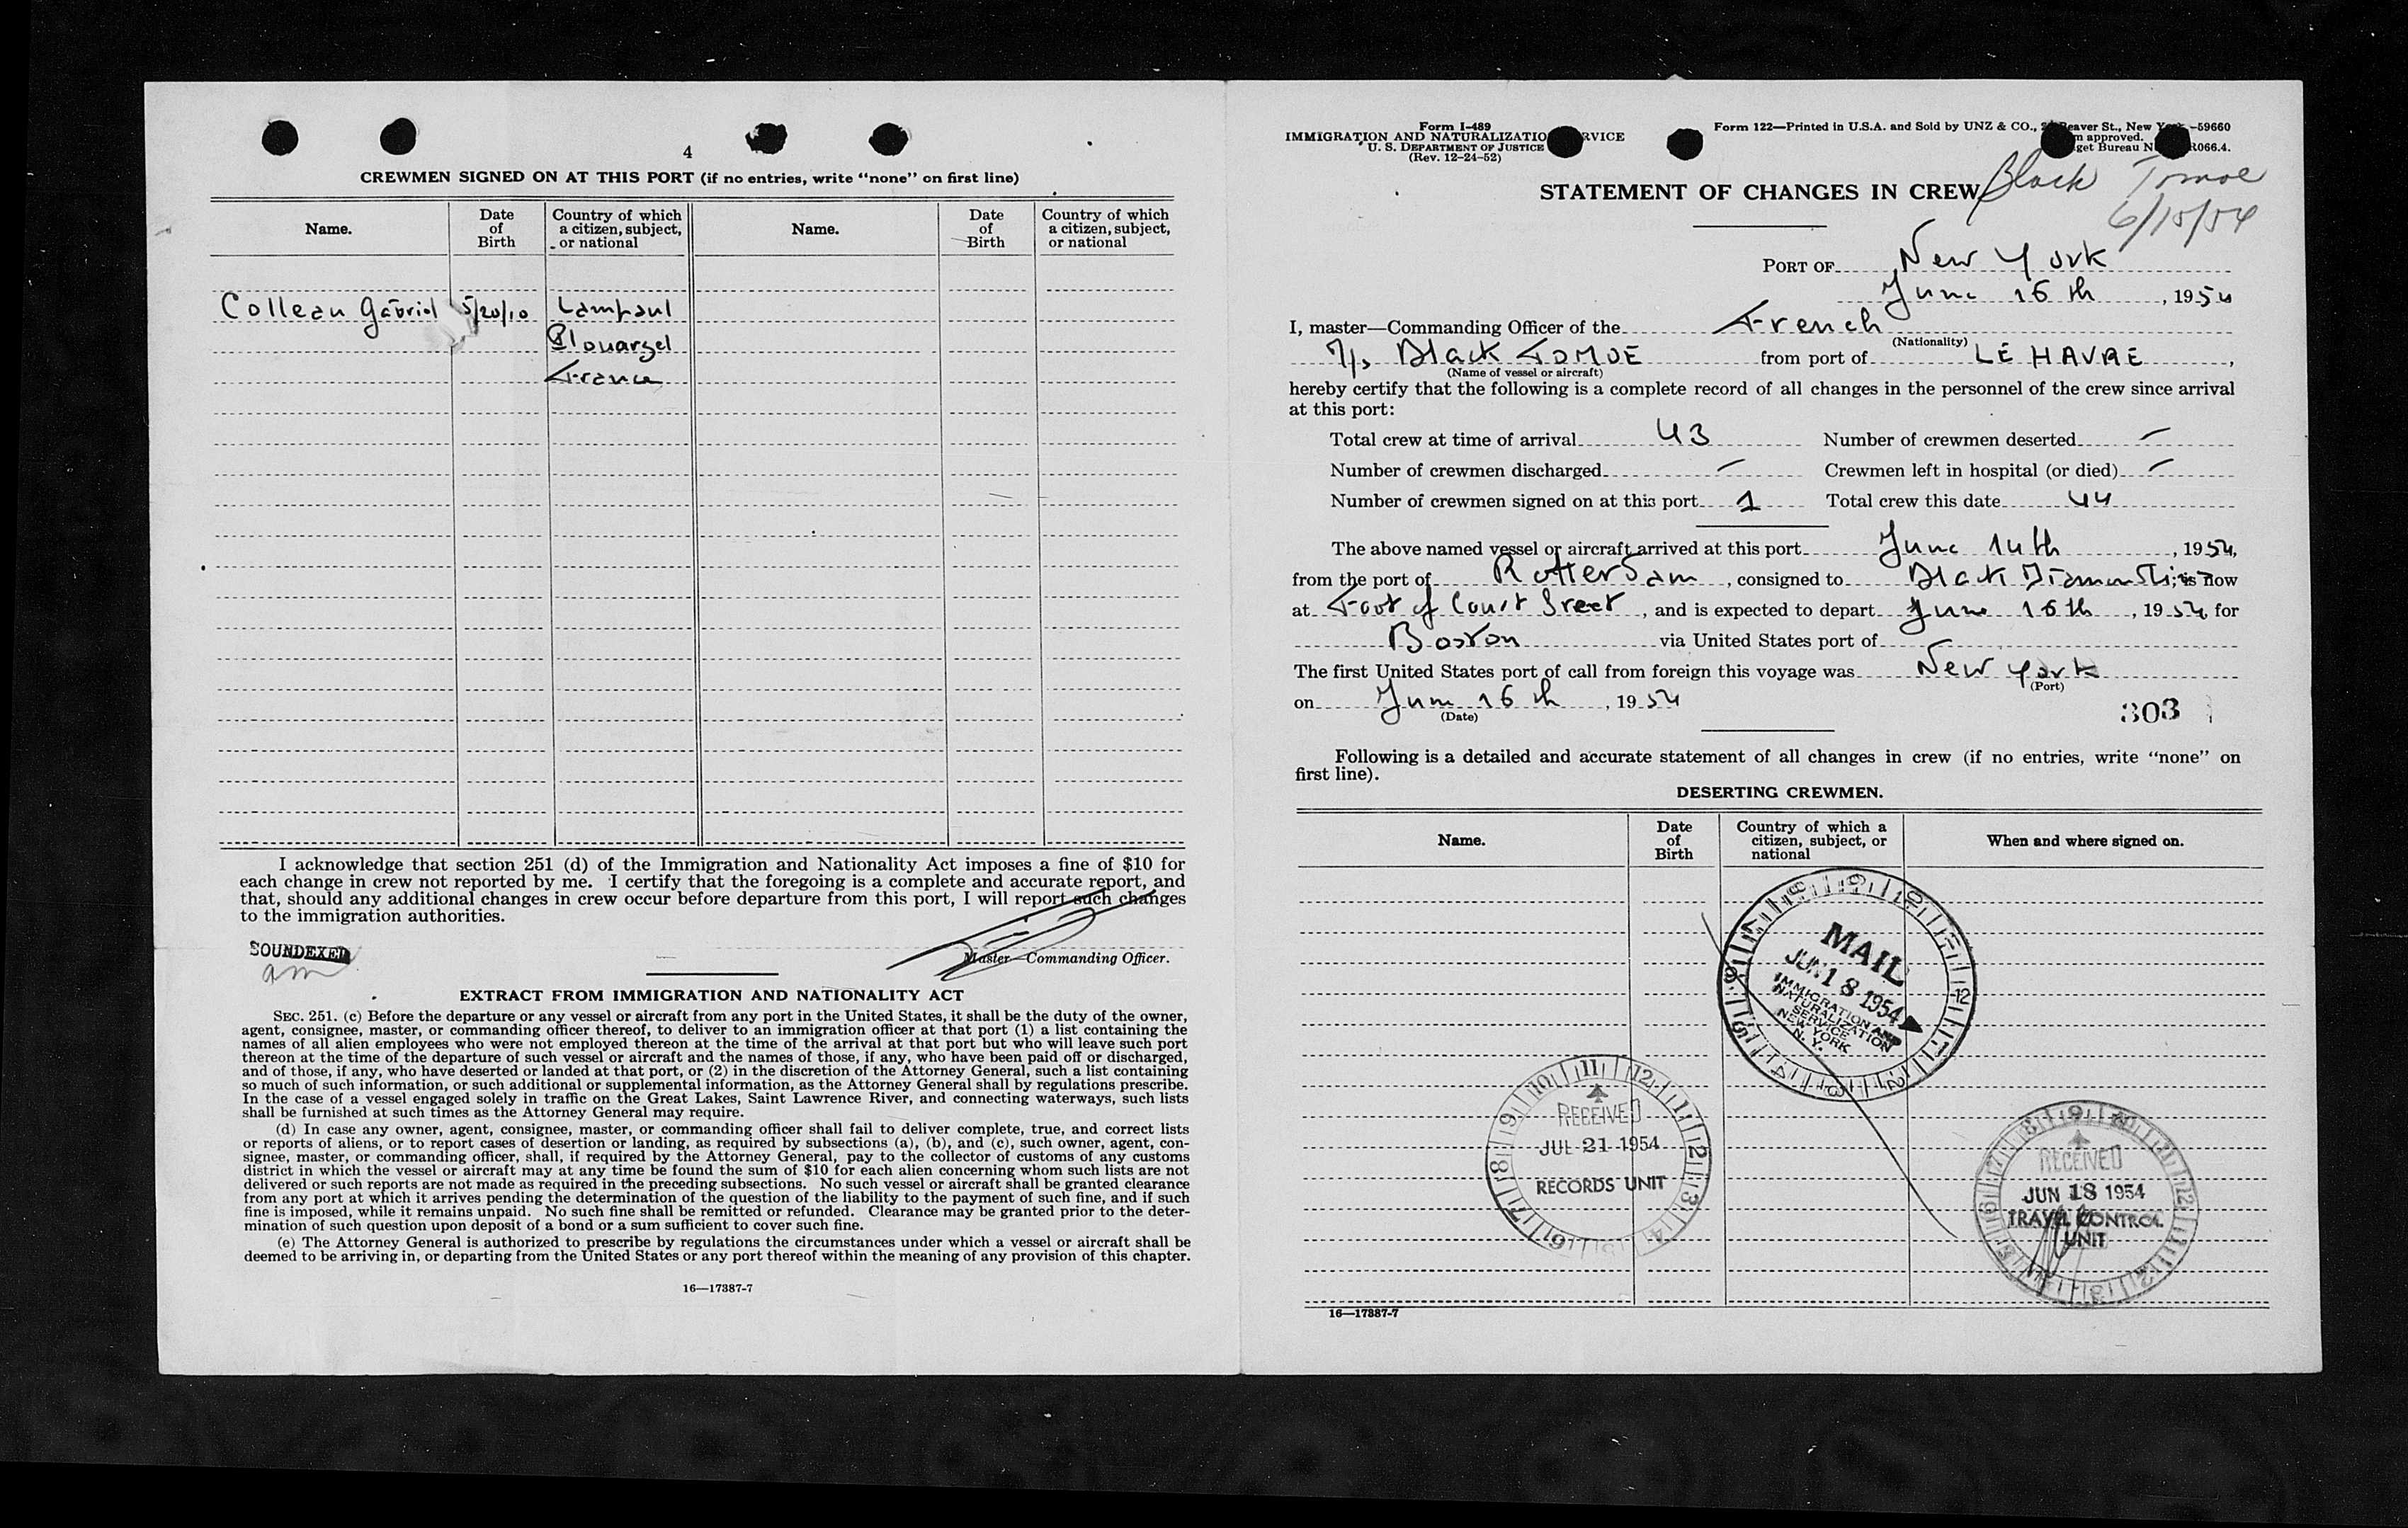 4
CREWMEN SIGNED ON AT THIS PORT (if no entries, write “none” on first line)
Name. Date of Birth Country of which a citizen, subject, or national Name. Date of Birth Country of which a citizen, subject, or national
Collean Gabriel 5/20/10 Lampaul
Plouarzel
France
I acknowledge that section 251 (d) of the Immigration and Nationality Act imposes a fine of $10 for
each change in crew not reported by me. I certify that the foregoing is a complete and accurate report, and
that, should any additional changes in crew occur before departure from this port, I will report such changes
to the immigration authorities.
SOUNDEXED
am
Master—Commanding Officer.
EXTRACT FROM IMMIGRATION AND NATIONALITY ACT
SEC. 251. (c) Before the departure or any vessel or aircraft from any port in the United States, it shall be the duty of the owner,
agent, consignee, master, or commanding officer thereof, to deliver to an immigration officer at that port (1) a list containing the
names of all alien employees who were not employed thereon at the time of the arrival at that port but who will leave such port
thereon at the time of the departure of such vessel or aircraft and the names of those, if any, who have been paid off or discharged,
and of those, if any, who have deserted or landed at that port, or (2) in the discretion of the Attorney General, such a list containing
so much of such information, or such additional or supplemental information, as the Attorney General shall by regulations prescribe.
In the case of a vessel engaged solely in traffic on the Great Lakes, Saint Lawrence River, and connecting waterways, such lists
shall be furnished at such times as the Attorney General may require.
(d) In case any owner, agent, consignee, master, or commanding officer shall fail to deliver complete, true, and correct lists
or reports of aliens, or to report cases of desertion or landing, as required by subsections (a), (b), and (c), such owner, agent, con-
signee, master, or commanding officer, shall, if required by the Attorney General, pay to the collector of customs of any customs
district in which the vessel or aircraft may at any time be found the sum of $10 for each alien concerning whom such lists are not
delivered or such reports are not made as required in the preceding subsections. No such vessel or aircraft shall be granted clearance
from any port at which it arrives pending the determination of the question of the liability to the payment of such fine, and if such
fine is imposed, while it remains unpaid. No such fine shall be remitted or refunded. Clearance may be granted prior to the deter-
mination of such question upon deposit of a bond or a sum sufficient to cover such fine.
(e) The Attorney General is authorized to prescribe by regulations the circumstances under which a vessel or aircraft shall be
deemed to be arriving in, or departing from the United States or any port thereof within the meaning of any provision of this chapter.
16—17387-7
Form I-489
IMMIGRATION AND NATURALIZATIO RVICE
U. S. DEPARTMENT OF JUSTICE
(Rev. 12-24-52)
Form 122—Printed in U.S.A. and Sold by UNZ & CO., eaver St., New Y —59660
m approved.
get Bureau N R066.4.
STATEMENT OF CHANGES IN CREW
Black Tomoe
6/15/54
PORT OF New York
June 16 th, 1954
I, master—Commanding Officer of the French
(Nationality)
M/s Black TOMOE from port of LE HAVRE,
(Name of vessel or aircraft)
hereby certify that the following is a complete record of all changes in the personnel of the crew since arrival
at this port:
Total crew at time of arrival 43 Number of crewmen deserted —
Number of crewmen discharged — Crewmen left in hospital (or died) —
Number of crewmen signed on at this port 1 Total crew this date 44
The above named vessel or aircraft arrived at this port June 14th, 1954,
from the port of Rotterdam, consigned to Black Diamond; is now
at Foot of Court Sreet, and is expected to depart June 16th, 1954, for
Boston via United States port of
The first United States port of call from foreign this voyage was New York
(Port)
on June 16 th, 1954
(Date)
303
Following is a detailed and accurate statement of all changes in crew (if no entries, write “none” on
first line).
DESERTING CREWMEN.
Name. Date of Birth Country of which a citizen, subject, or national When and where signed on.
MAIL
JUN 18 1954
IMMIGRATION AND
NATURALIZATION
SERVICE
NEW YORK
N. Y.
RECEIVED
JUL 21 1954
RECORDS UNIT
RECEIVED
JUN 18 1954
TRAVEL CONTROL
UNIT
16—17387-7